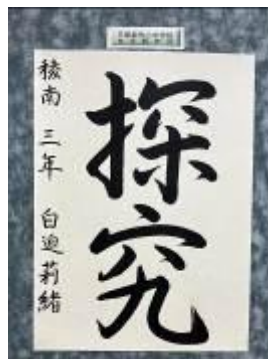 探究
稜南 三年 白迫莉緒